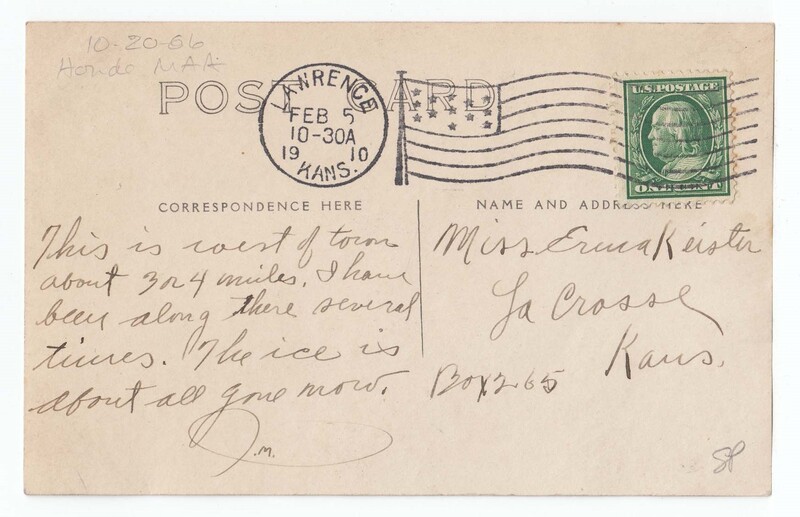 10-20-06
Hondo MAA
POST CARD
LAWRENCE
FEB 5
10-30A
19 10
KANS.
U.S. POSTAGE
ONE CENT
CORRESPONDENCE HERE
NAME AND ADDRESS HERE
This is west of town
about 3 or 4 miles. I have
been along there several
times. The ice is
about all gone now.
J.M.
Miss Erma Keister
La Crosse
Kans.
Box 265
SP